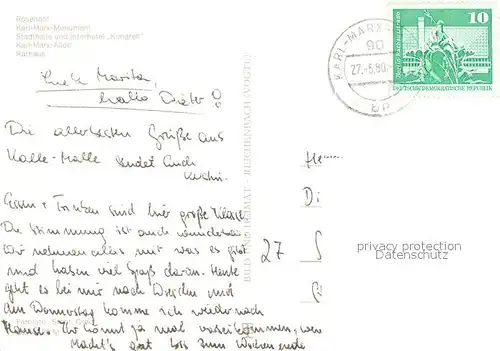 Rosenhof
Karl-Marx-Monument
Stadthalle und Interhotel „Kongreß“
Karl-Marx-Allee
Rathaus
KARL-MARX-
90
27.-5.80.
bp
10
DEUTSCHE DEMOKRATISCHE REPUBLIK
Marita,
hallo Dieter!
Die allerbesten Grüße aus
Kalle-Malle sendet Euch
Essen + Trinken sind hier große Klasse.
Die Stimmung ist auch
Wir nehmen alles mit was es gibt
und haben viel Spaß daran. Heute
geht es bei mir nach Dresden und
am Donnerstag komme ich wieder nach
Hause. Ihr könnt ja mal vorbeikommen, wenn
Macht's gut bis zum Wochenende
BILD UND HEIMAT · REICHENBACH (VOGTL)
Di
27
privacy protection
Datenschutz